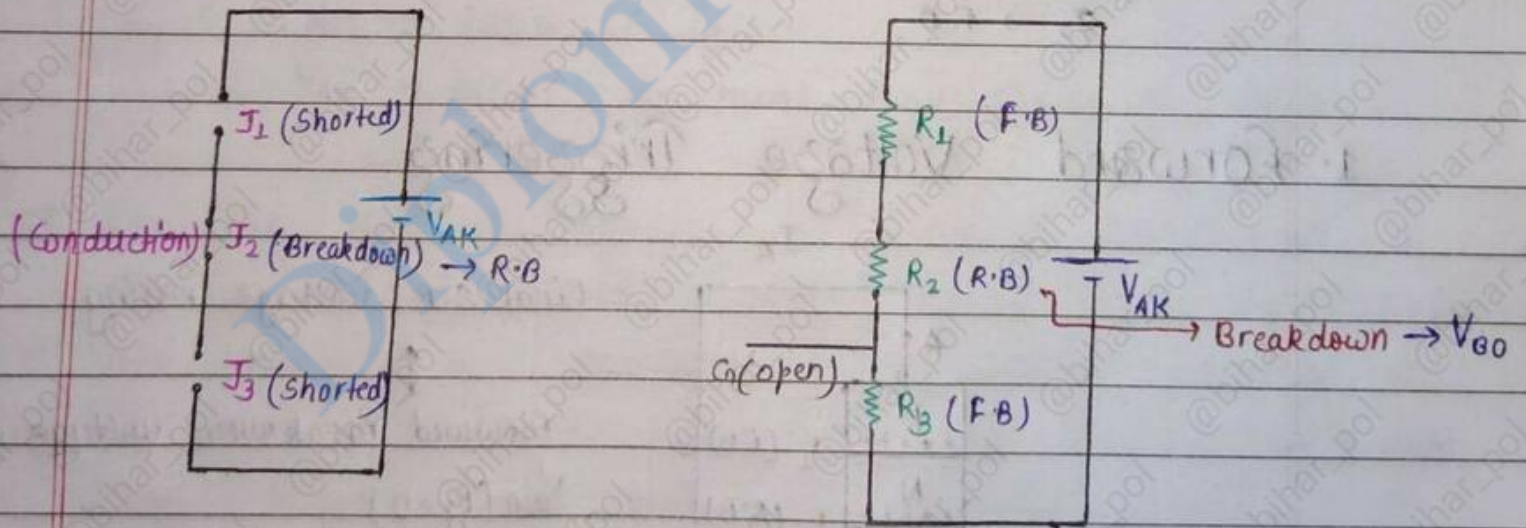 J1 (Shorted)
(Conduction) J2 (Breakdown) → R·B
VAK
J3 (Shorted)
R1 (F·B)
R2 (R·B)
VAK
→ Breakdown → VBO
G(open)
R3 (F·B)
Diplom
@bihar_pol